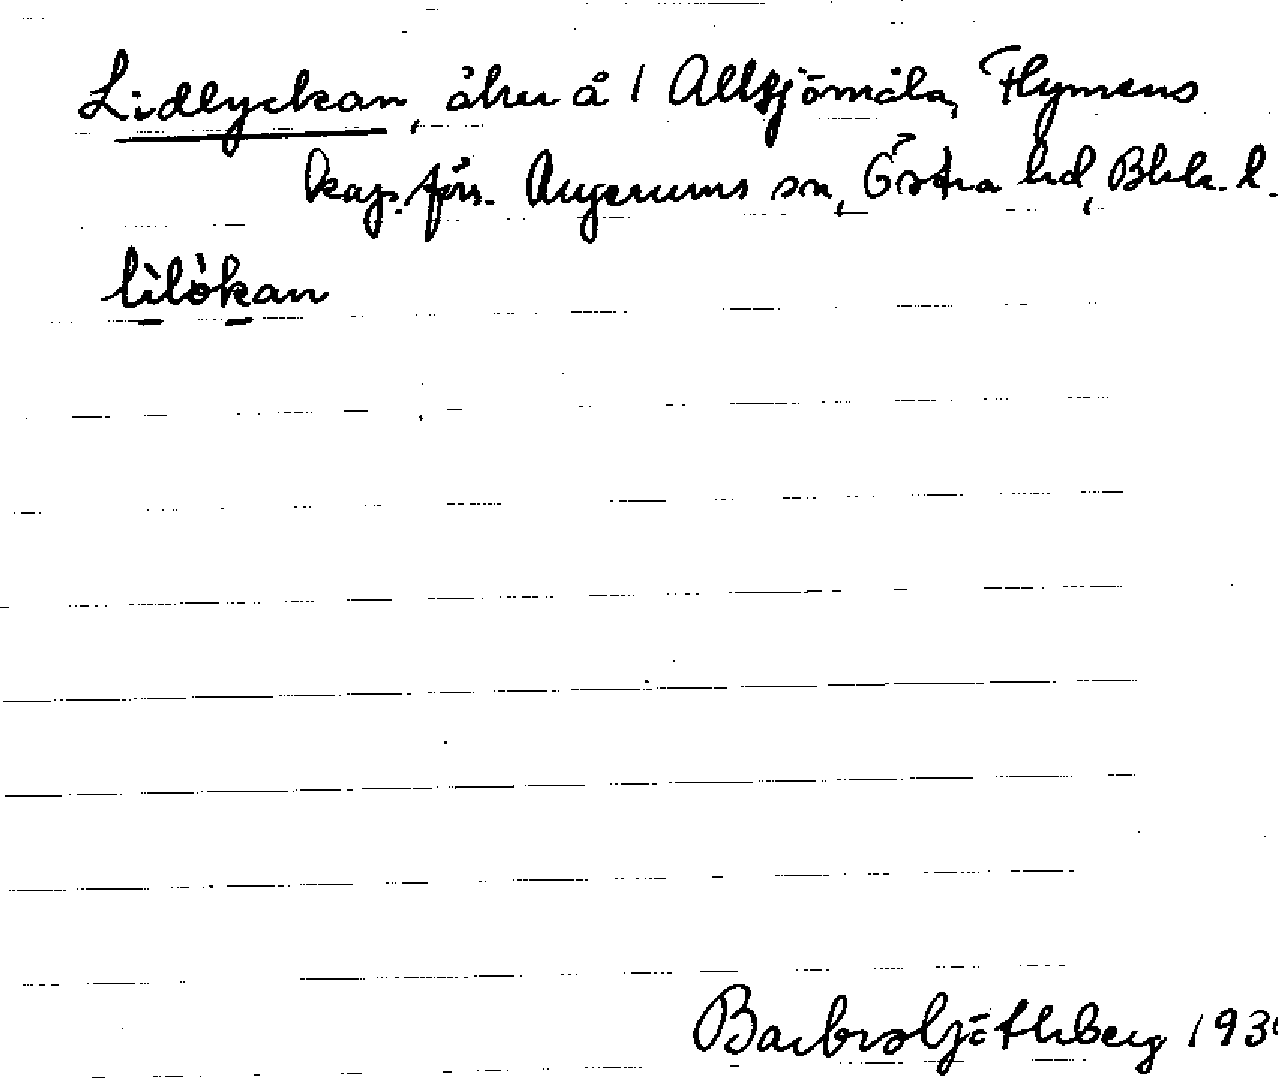 Lidlyckan, åker å 1 Allsjömåla, Flymens
kap. förs. Augerums sn, Östra hd, Blek. l.
lìlòkan
Barbro Ljöthberg